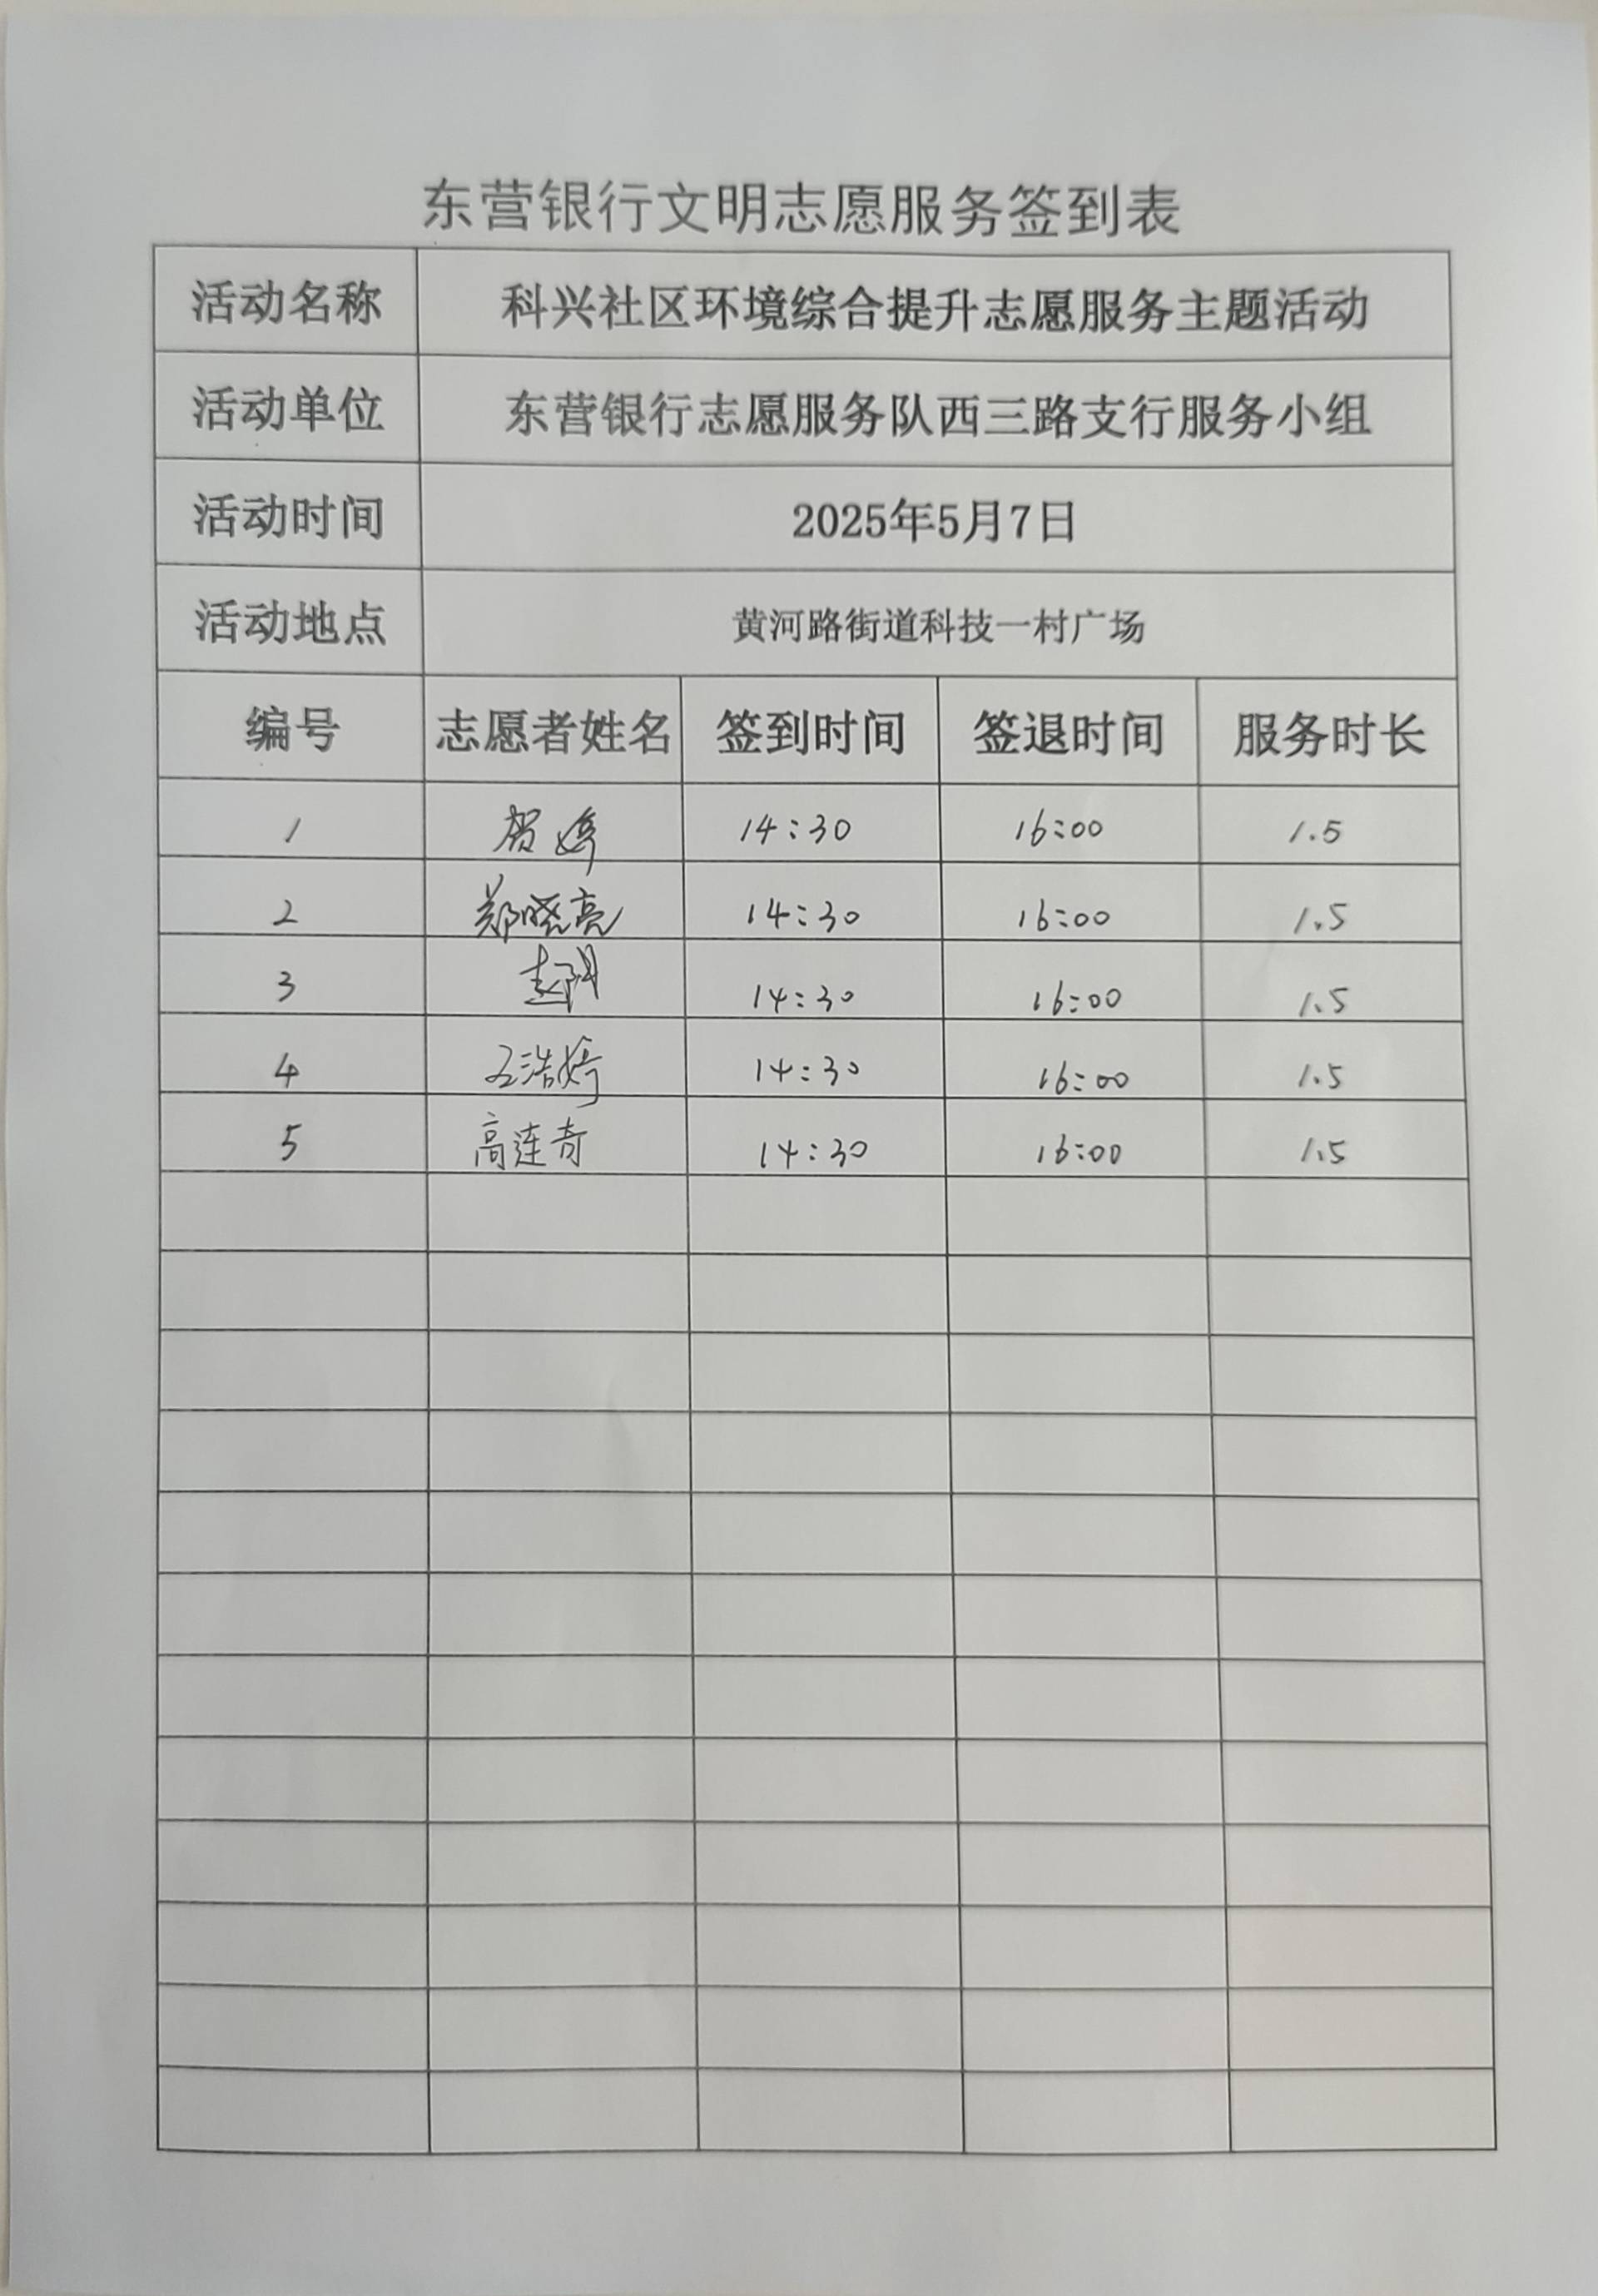 东营银行文明志愿服务签到表
活动名称 科兴社区环境综合提升志愿服务主题活动
活动单位 东营银行志愿服务队西三路支行服务小组
活动时间 2025年5月7日
活动地点 黄河路街道科技一村广场
编号 志愿者姓名 签到时间 签退时间 服务时长
1 贺婷 14:30 16:00 1.5
2 郑晓亮 14:30 16:00 1.5
3 赵 14:30 16:00 1.5
4 浩婷 14:30 16:00 1.5
5 高连奇 14:30 16:00 1.5